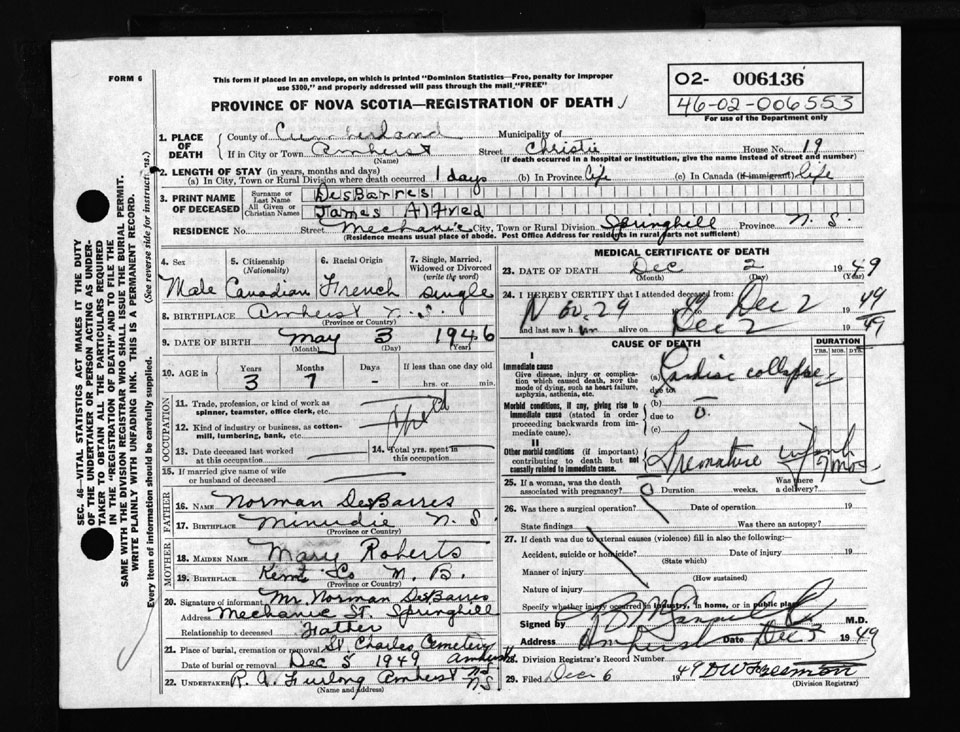 FORM 6
This form if placed in an envelope, on which is printed "Dominion Statistics—Free, penalty for improper
use $300," and properly addressed will pass through the mail "FREE"
02- 006136
46-02-006553
For use of the Department only
PROVINCE OF NOVA SCOTIA—REGISTRATION OF DEATH
1. PLACE OF DEATH
County of Cumberland Municipality of
If in City or Town Amherst Street Christie House No. 19
(Name) (If death occurred in a hospital or institution, give the name instead of street and number)
2. LENGTH OF STAY (in years, months and days)
(a) In City, Town or Rural Division where death occurred 1 days (b) In Province life (c) In Canada (if immigrant) life
3. PRINT NAME OF DECEASED
Surname or Last Name DesBarres
All Given or Christian Names James Alfred
RESIDENCE No. Street Mechanic City, Town or Rural Division Springhill Province N. S.
(Residence means usual place of abode. Post Office Address for residents in rural parts not sufficient)
4. Sex 5. Citizenship (Nationality) 6. Racial Origin 7. Single, Married, Widowed or Divorced (write the word)
Male Canadian French single
8. BIRTHPLACE Amherst N. S.
(Province or Country)
9. DATE OF BIRTH May 3 1946
(Month) (Day) (Year)
10. AGE in Years Months Days If less than one day old
3 7 - hrs. or min.
OCCUPATION
11. Trade, profession or kind of work as spinner, teamster, office clerk, etc.
12. Kind of industry or business, as cotton-mill, lumbering, bank, etc.
13. Date deceased last worked at this occupation
14. Total yrs. spent in this occupation
15. If married give name of wife or husband of deceased
FATHER
16. NAME Norman DesBarres
17. BIRTHPLACE Minudie N. S.
(Province or Country)
MOTHER
18. MAIDEN NAME Mary Roberts
19. BIRTHPLACE Kent Co N. B.
(Province or Country)
20. Signature of informant Mr. Norman DesBarres
Address Mechanic St. Springhill
Relationship to deceased Father
21. Place of burial, cremation or removal St. Charles Cemetery Amherst
Date of burial or removal Dec 5 1949 NS
22. UNDERTAKER R. A. Furlong Amherst NS
(Name and address)
MEDICAL CERTIFICATE OF DEATH
23. DATE OF DEATH Dec 2 1949
(Month) (Day)
24. I HEREBY CERTIFY that I attended deceased from:
Nov. 29 to Dec 2 1949
and last saw him alive on Dec 2 1949
CAUSE OF DEATH
DURATION
YRS. MOS. DYS.
I
Immediate cause
Give disease, injury or complication which caused death, NOT the mode of dying, such as heart failure, asphyxia, asthenia, etc.
(a) Cardiac collapse
due to
Morbid conditions, if any, giving rise to immediate cause (stated in order proceeding backwards from immediate cause).
(b)
due to
(c)
II
Other morbid conditions (if important) contributing to death but not causally related to immediate cause.
Premature
25. If a woman, was the death associated with pregnancy? Duration weeks. Was there a delivery?
26. Was there a surgical operation? Date of operation 19
State findings Was there an autopsy?
27. If death was due to external causes (violence) fill in also the following:
Accident, suicide or homicide? Date of injury 19
(State which)
Manner of injury
(How sustained)
Nature of injury
Specify whether injury occurred in industry, in home, or in public place
Signed by M.D.
Address Amherst Date Dec 3 1949
28. Division Registrar's Record Number
29. Filed Dec 6 1949 DW Freeman
(Division Registrar)
SEC. 46—VITAL STATISTICS ACT MAKES IT THE DUTY
OF THE UNDERTAKER OR PERSON ACTING AS UNDER-
TAKER TO OBTAIN ALL THE PARTICULARS REQUIRED
IN THE "REGISTRATION OF DEATH" AND TO FILE THE
SAME WITH THE DIVISION REGISTRAR WHO SHALL ISSUE THE BURIAL PERMIT.
WRITE PLAINLY WITH UNFADING INK. THIS IS A PERMANENT RECORD.
Every item of information should be carefully supplied. (See reverse side for instructions.)